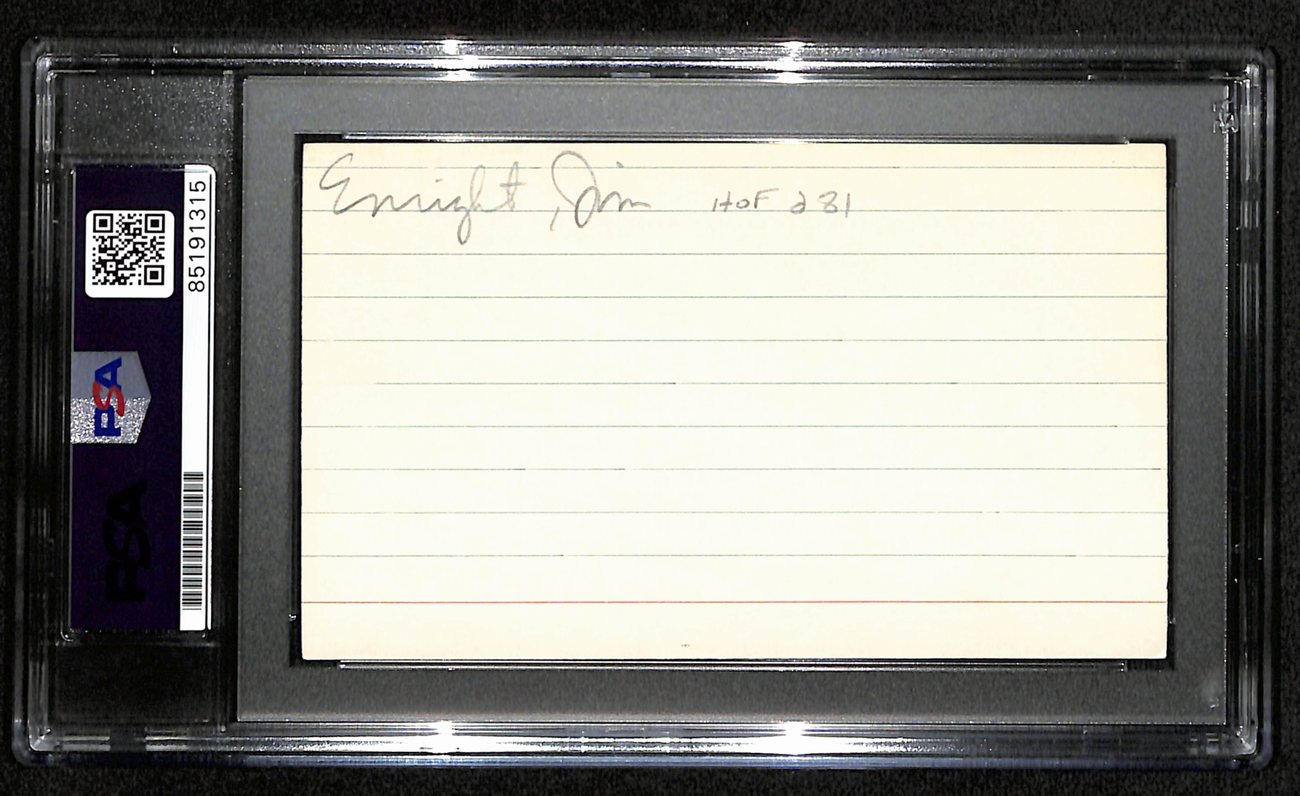 Enright, Jim HOF 281
85191315
PSA
PSA